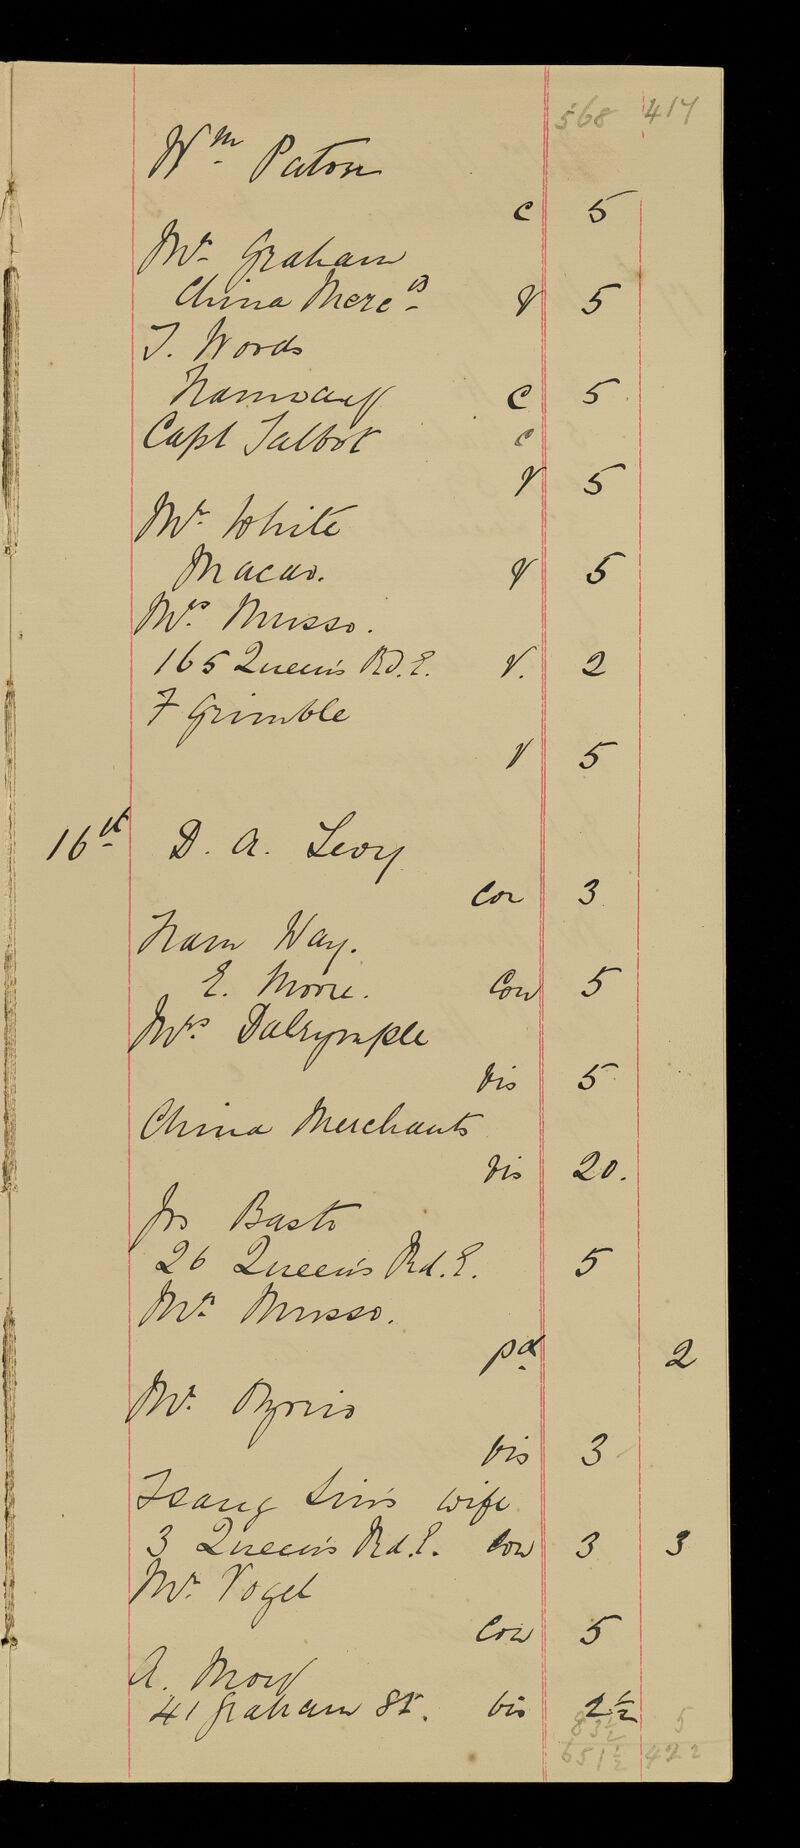 568 417
Wm Paton
c 5
Mr Graham
China Mercts V 5
T. Words
Namoa c 5
Capt Talbot c
V 5
Mr White
Macao. V 5
Mrs Musso.
165 Queen's Rd. E. V. 2
F Grimble
V 5
16th D. A. Levy
Con 3
Nam Way.
E. Moore. Con 5
Mrs Dalrymple
Vis 5
China Merchants
Vis 20.
Jos Basto
26 Queen's Rd. E. 5
Mrs Musso.
pd 2
Mr
Vis 3
Tsang Sin's wife
3 Queen's Rd. E. Con 3 3
Mr Vogel
Con 5
A.
41 Graham St. Vis 2½
83½ 5
651½ 422